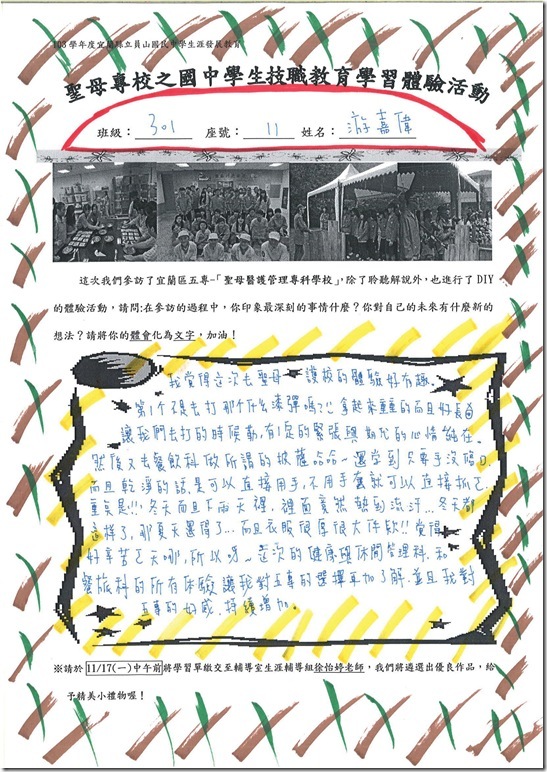 103學年度宜蘭縣立員山國民中學生涯發展教育
聖母專校之國中學生技職教育學習體驗活動
班級：301 座號：11 姓名：游嘉偉
這次我們參訪了宜蘭區五專-「聖母醫護管理專科學校」，除了聆聽解說外，也進行了DIY
的體驗活動，請問:在參訪的過程中，你印象最深刻的事情什麼？你對自己的未來有什麼新的
想法？請將你的體會化為文字，加油！
我覺得這次去聖母 護校的體驗好有趣
第1个是去打那个什么漆彈嗎?!拿起來重重的而且好長
讓我們去打的時候勒,有1定的緊張與期代的心情純在。
然後又去餐飲科做所謂的披薩~還学到只要手沒傷口
而且乾淨的話是可以直接用手,不用手套就可以直接抓
重莫是!!!冬天而且下雨天裡,裡面竟然熱到流汗...冬天都
這樣了,那夏天還得了...而且衣服很厚很大件欸!!覺得
好辛苦 天哪,所以呀~這次的健康 休閒管理科.和
餐旅科的所有体驗,讓我對五專的選擇更加了解.並且我對
五專的好感.持續增加。
※請於 11/17(一)中午前將學習單繳交至輔導室生涯輔導組徐怡婷老師，我們將遴選出優良作品，給
予精美小禮物喔！